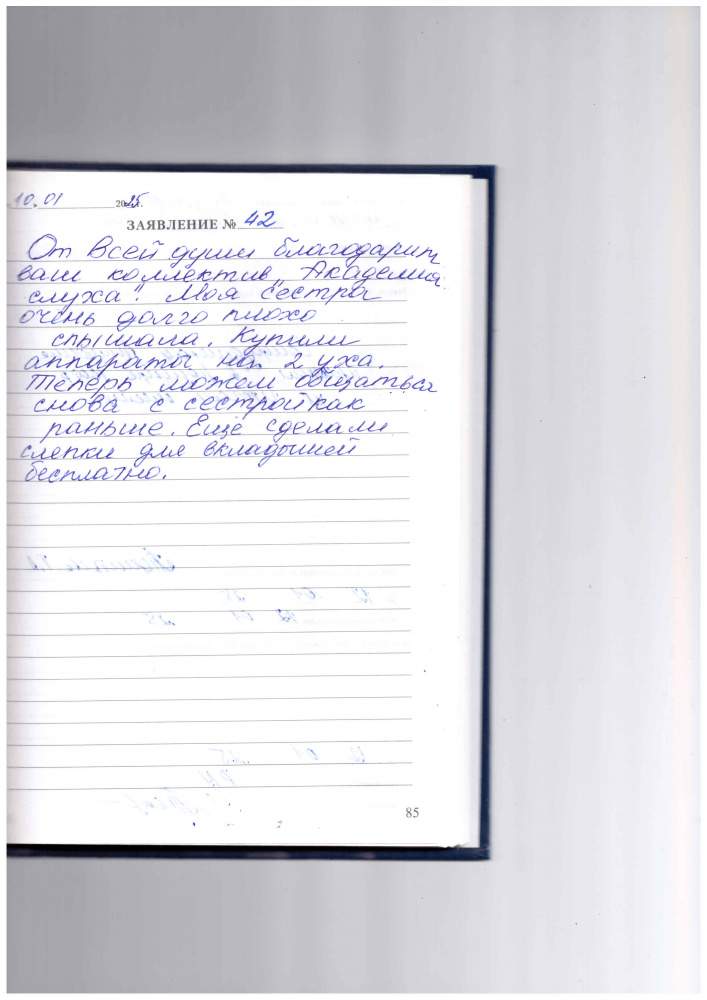 10.01 2025г.
ЗАЯВЛЕНИЕ № 42
От всей души благодарим
ваш коллектив „Академия
слуха". Моя сестра
очень долго плохо
слышала. Купили
аппараты на 2 уха.
Теперь можем общаться
снова с сестрой как
раньше. Ещё сделали
слепки для вкладышей
бесплатно.
85